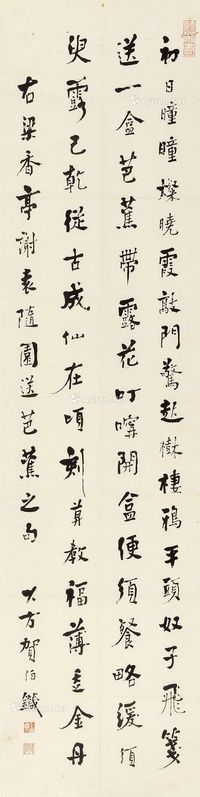 初日曈曈燦曉霞敲門驚起樹棲鴉平頭奴子飛箋
送一盒芭蕉帶露花叮嚀開盒便須餐略緩須
臾露已乾從古成仙在頃刻莫教福薄金丹
右梁香亭謝袁隨園送芭蕉之句 大方賀伯鍼